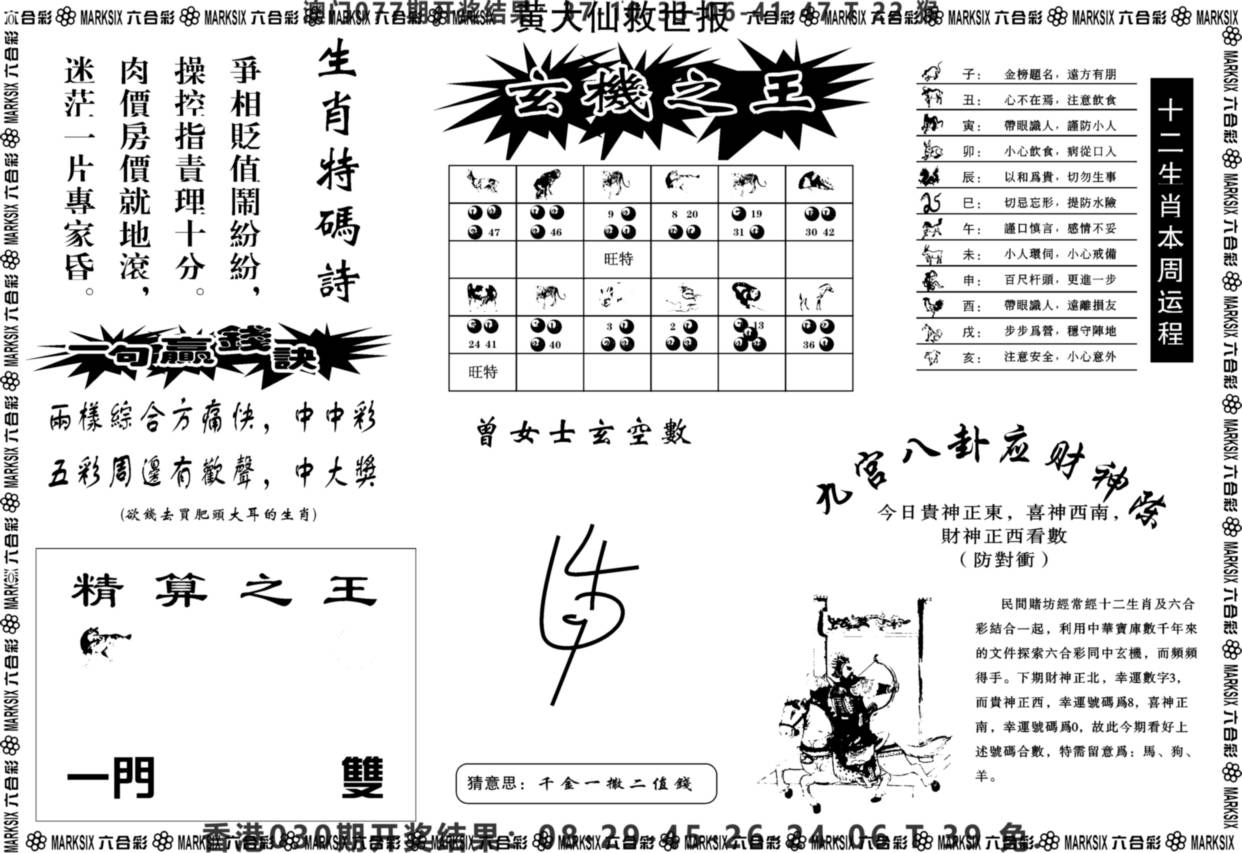 黄大仙救世报
生肖特碼詩
爭相貶值鬧紛紛，
操控指責理十分。
肉價房價就地滾，
迷茫一片專家昏。
一句贏錢訣
兩樣綜合方痛快，中中彩
五彩周邊有歡聲，中大獎
(欲錢去買肥頭大耳的生肖)
精算之王
一門
雙
玄機之王
47
46
9
8 20
19
31
30 42
旺特
24 41
40
3
2
13
36
旺特
曾女士玄空數
猜意思：千金一撒二值錢
十二生肖本周运程
子： 金榜題名，遠方有朋
丑： 心不在焉，注意飲食
寅： 帶眼識人，謹防小人
卯： 小心飲食，病從口入
辰： 以和爲貴，切勿生事
巳： 切忌忘形，提防水險
午： 謹口慎言，感情不妥
未： 小人環伺，小心戒備
申： 百尺杆頭，更進一步
酉： 帶眼識人，遠離損友
戌： 步步爲營，穩守陣地
亥： 注意安全，小心意外
孔宮八卦应财神
今日貴神正東，喜神西南，
財神正西看數
（防對衝）
民間賭坊經常經十二生肖及六合
彩結合一起，利用中華寶庫數千年來
的文件探索六合彩同中玄機，而頻頻
得手。下期財神正北，幸運數字3，
而貴神正西，幸運號碼爲8，喜神正
南，幸運號碼爲0，故此今期看好上
述號碼合數，特需留意爲：馬、狗、
羊。
香港030期开奖结果：08 29 45 26 24 06 T 39 兔
MARKSIX 六合彩